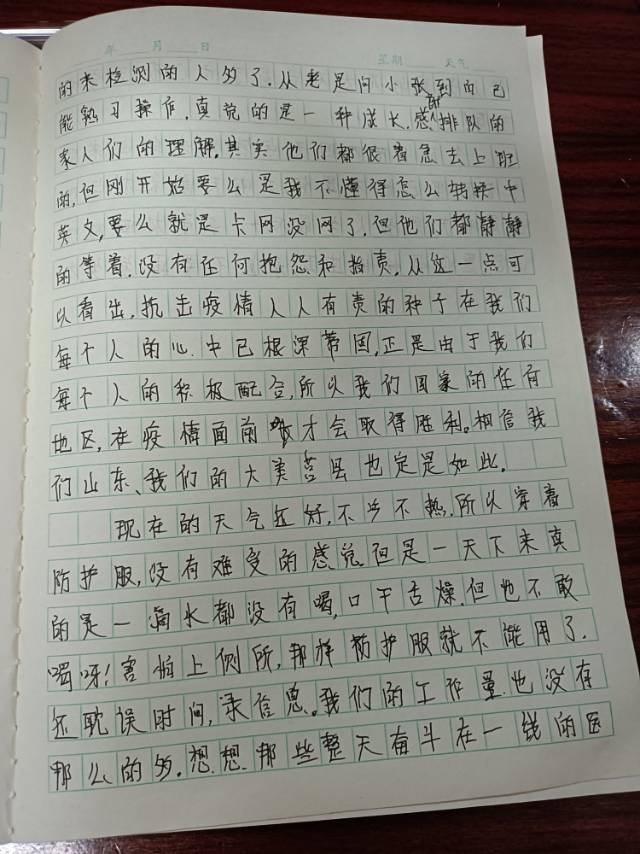 年 月 日 星期 天气
的来检测的人多了.从老是问小张到自己
能熟习操作.真说的是一种成长.感谢排队的
家人们的理解.其实他们都很着急去上班
的,但刚开始要么是我不懂得怎么转换中
英文,要么就是卡网没网了.但他们都静静
的等着.没有任何抱怨和指责.从这一点可
以看出,抗击疫情人人有责的种子在我们
每个人的心中已根深蒂固,正是由于我们
每个人的积极配合,所以我们国家的任何
地区,在疫情面前才会取得胜利。相信我
们山东、我们的大美莒县也定是如此.
现在的天气还好,不冷不热.所以穿着
防护服,没有难受的感觉.但是一天下来真
的是一滴水都没有喝,口干舌燥.但也不敢
喝呀!害怕上侧所,那样防护服就不能用了.
还耽误时间,录信息。我们的工作量也没有
那么的多.想想那些整天奋斗在一线的医